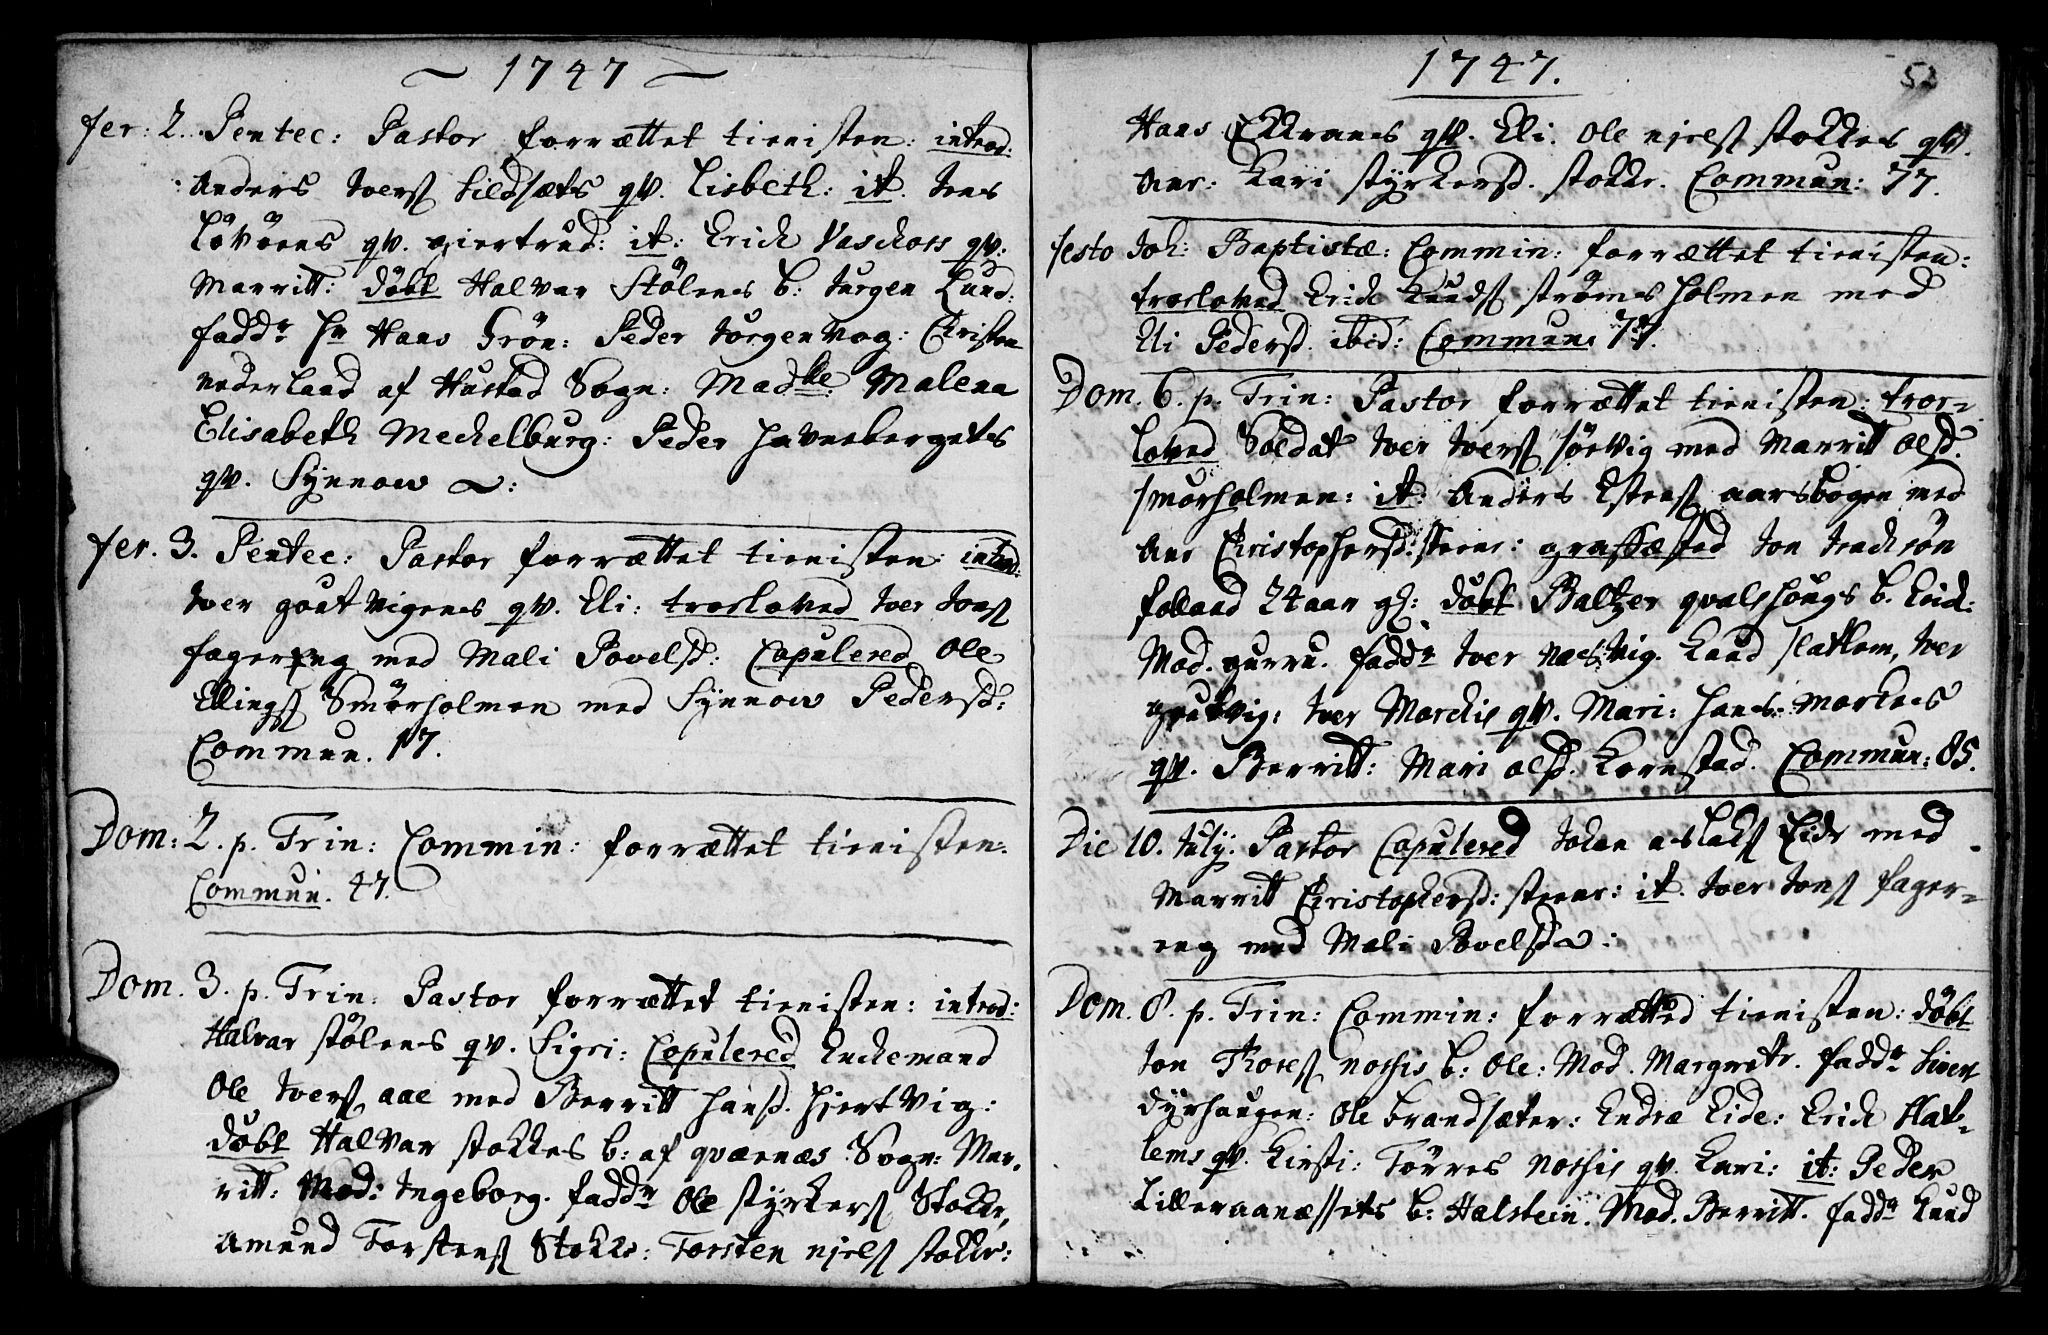 ~ 1747 ~
fer: 2. Pentec: Pastor forrættet tienisten: introd:
Anders Ivers Sildsæts qv. Lisbeth: it. Jens
Lövöens qv. giertrud: it: Erich Vaschoss qv:
Marritt: döbt Halvar Stölens b: Jurgen Lund:
fadd:r Hr Hans Grön: Peder Jörgenvog: Christen
nederland af Hustad Sogn: Mad:lle Malena
Elisabeth Mechelburg: Peder Havnebergets
qv. Synnow
fer. 3. Pentec: Pastor forrættet tienisten: introd:
Iver goutvigens qv. Eli: trolowed Iver Jons
fagereng med Mali Povelsd: Copulered Ole
Ellings Smörholmen med Synnow Pedersd:
Commun. 17.
Dom: 2. p. Trin: Commin: forrættet tienisten:
Commun. 47.
Dom. 3. p. Trin: Pastor forrættet tienisten: introd:
Halvar stölens qv. Sigri: Copulered Enckemand
Ole Ivers aae med Berritt Hansd. Hjertvig:
döbt Halvar stokkes b: af qværnæs Sogn: Mar-
ritt: Mod: Ingeborg. fadd:r Ole styrkers Stokke,
Amund Torstens Stokke: Torsten njels stokke:
1747.
52
Hans Ekkranes qv. Eli. Ole njels stokkes qv.
Ane: Kari styrkersd. stokke. Commun: 77.
festo Joh: Baptistæ: Commin: forrættet tienisten:
troeloved Erich Knuds strömsholmen med
Eli Pedersd. ibid: Commun: 77.
Dom. 6. p. Trin: Pastor forrættet tienisten: troe-
loved Soldat Iver Ivers sörvig med Marritt Olsd.
smörholmen: it: Anders Estens aarsbogen med
Ane Christophersd: steene: græffæsted Jon
folland 24 aar gl: döbt Baltzer qvalshougs b. Erich:
Mod. gurru. fadd:r Iver næsvig. Knud slatlem, Iver
goutvig: Iver Morchis qv. Mari: Hans Morknes
qv. Berritt: Mari olsd. Kornstad. Commun: 85.
Die 10. July: Pastor Copulered Johan aslaks Eide med
Marritt Christophersd: steene: it. Iver Jons fager-
eng med Mali Povelsd:
Dom. 8. p. Trin: Commin: forrætted tienisten: döbt
Jon Thores nossis b: Ole: Mod. Margrete. fadd:r Siver
dyrhaugen: Ole brandsæter: Endre Eide: Erich slat-
lems qv. Kirsti: Törres nossis qv. Kari: it: Peder
Lilleraanæssets b: Halstein. Mod. Berritt. fadd:r Knud